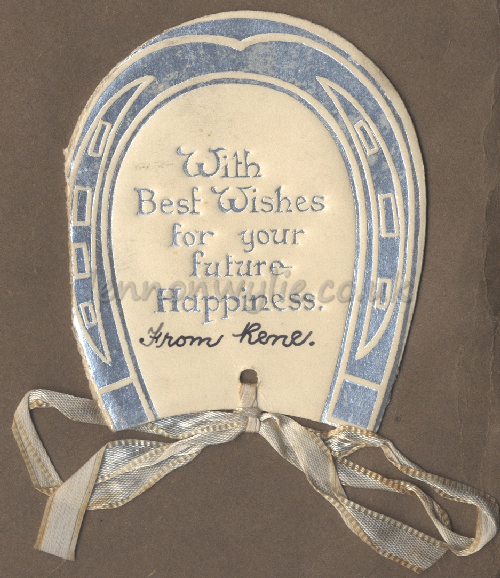 With
Best Wishes
for your
future
Happiness.
From Rene.
lennonwylie.co.uk